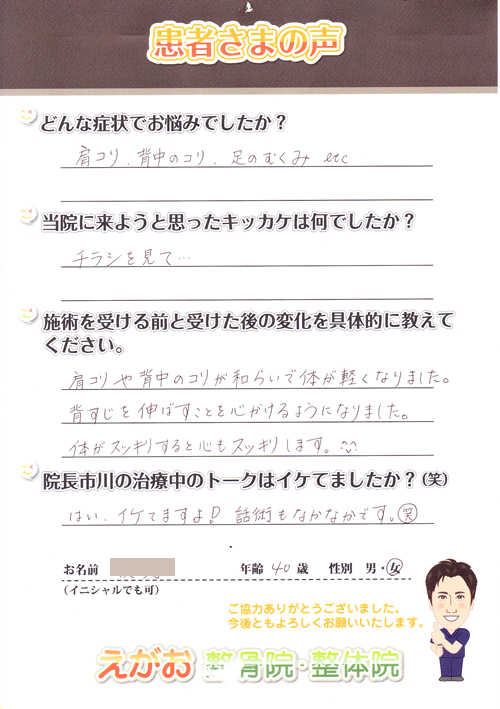 患者さまの声
どんな症状でお悩みでしたか？
肩コリ、背中のコリ、足のむくみ etc
当院に来ようと思ったキッカケは何でしたか？
チラシを見て…
施術を受ける前と受けた後の変化を具体的に教えて
ください。
肩コリや背中のコリが和らいで体が軽くなりました。
背すじを伸ばすことを心がけるようになりました。
体がスッキリすると心もスッキリします。^^
院長市川の治療中のトークはイケてましたか？(笑)
はい、イケてますよ！ 話術もなかなかです。笑
お名前 年齢 40 歳 性別 男・女
（イニシャルでも可）
ご協力ありがとうございました。
今後ともよろしくお願いいたします。
えがお 整骨院・整体院